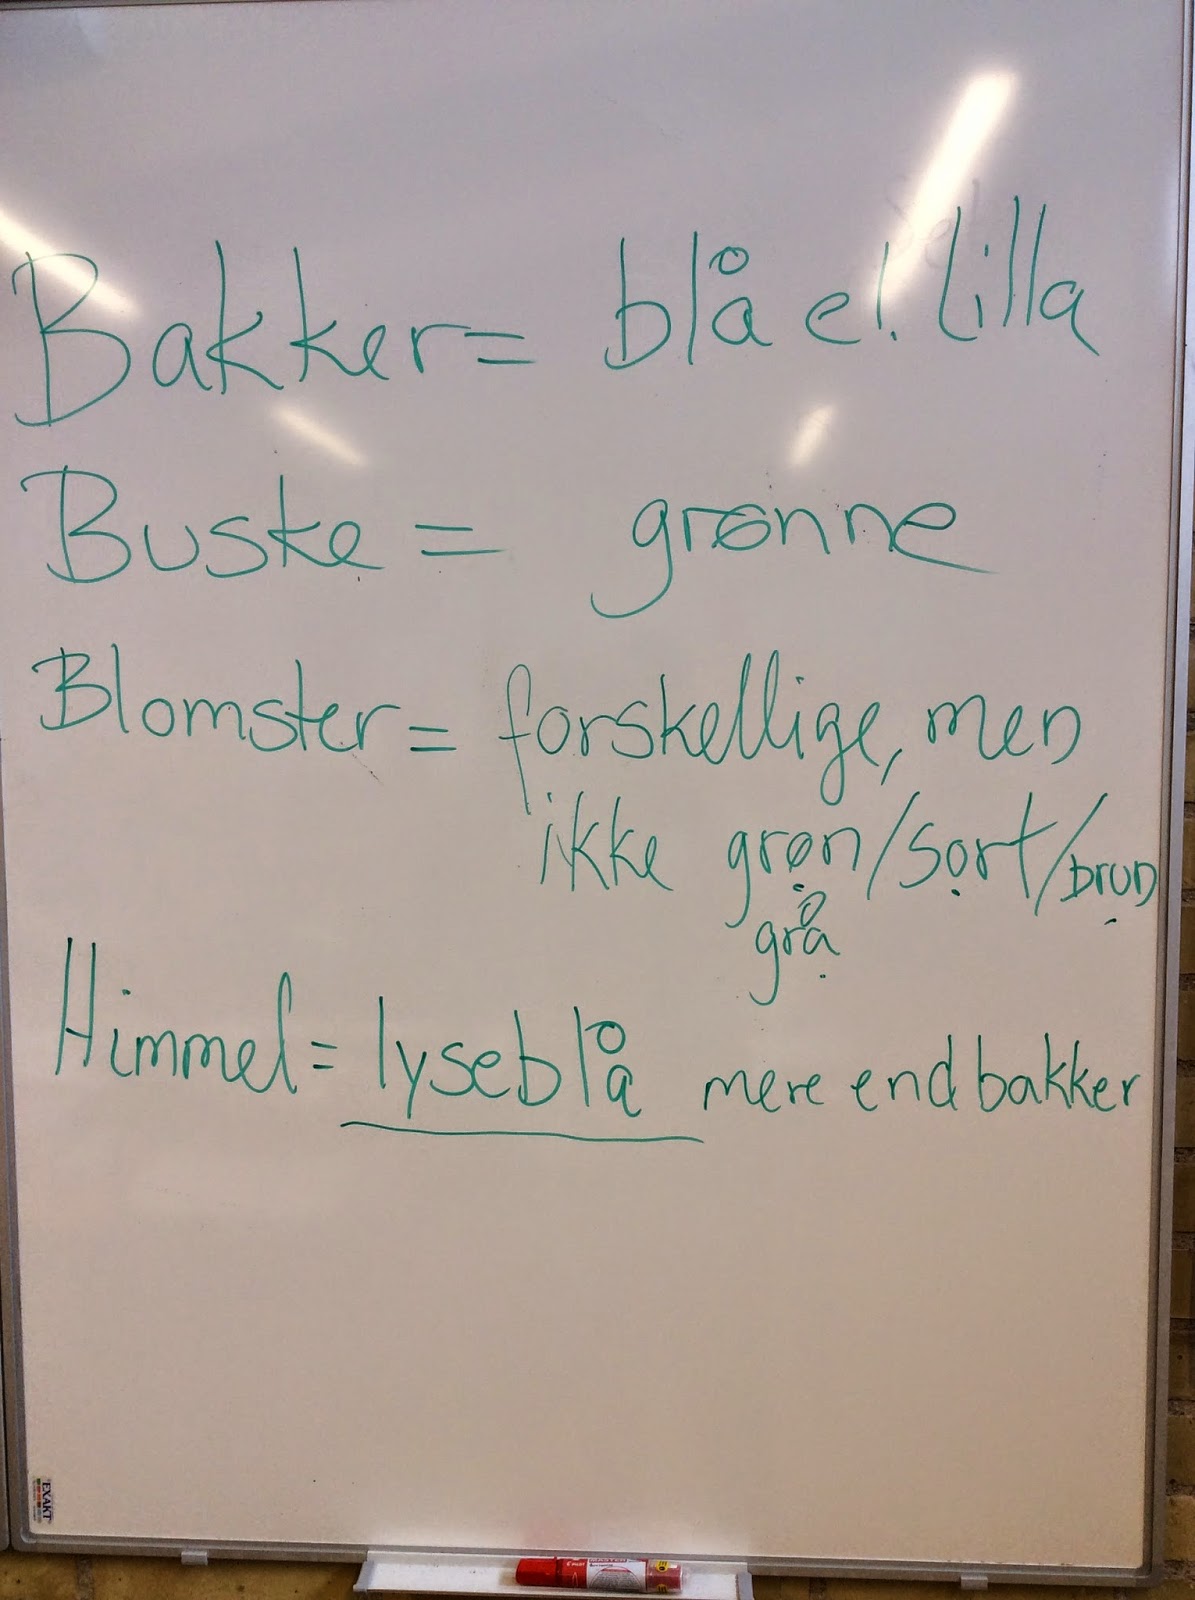 Bakker = blå el. lilla
Buske = grønne
Blomster = forskellige, men
ikke grøn/sort/brun
grå
Himmel = lyseblå mere end bakker
EXAKT
PILOT